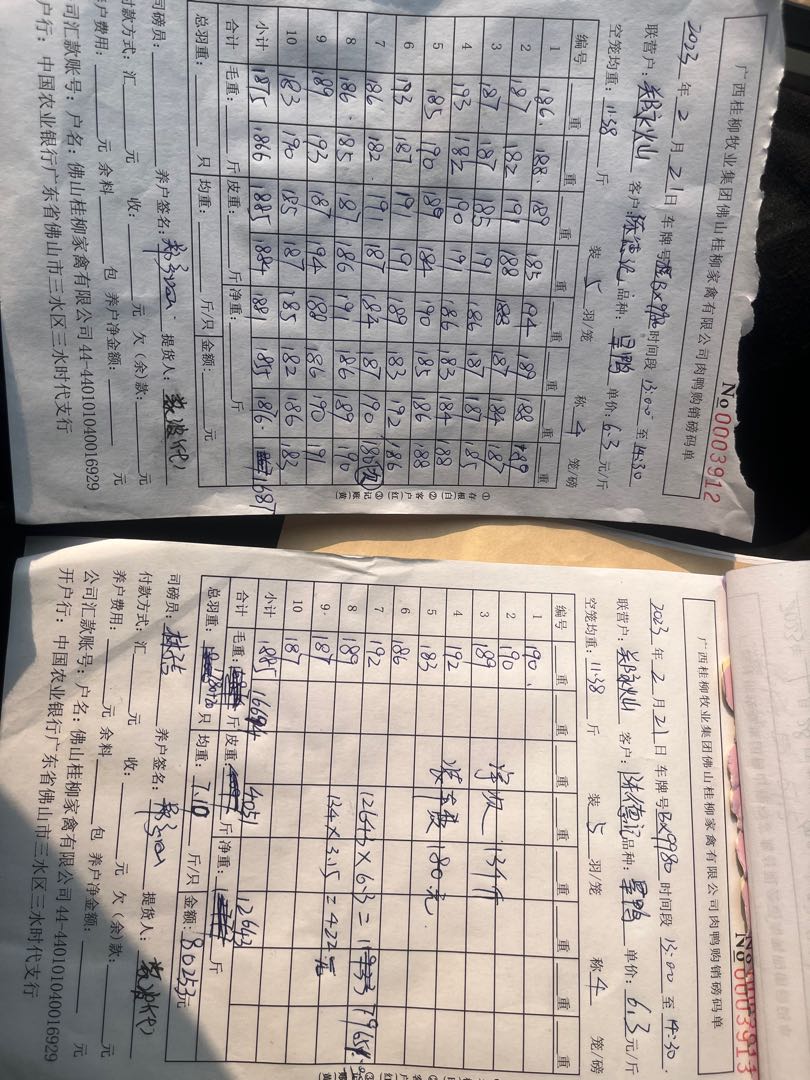 广西桂柳牧业集团佛山桂柳家禽有限公司肉鸭购销磅码单
No 0003912
2023年2月21日 车牌号 BX9980 时间段 13:00 至 14:30
联营户: 客户: 陈德记 品种: 旱鸭 单价: 6.3 元/斤
空笼均重: 11.38 斤 装 5 羽/笼 称 4 笼/磅
编号 重 重 重 重 重 重 重 重
1 186. 188. 189 185 194 189 188 190
2 187 182 191 188 188 187 184 187
3 187 187 185 191 186 187 187 185
4 193 182 190 191 186 183 184 188
5 185 190 189 184 190 185 186 188
6 193 187 191 191 189 183 192 186
7 186 182. 191 187 184 187 190 185
8 186. 185 187 186 191 186 189 190
9 189 193 187 194 188 186 190 191
10 183 190 185 187 185 182 186 183
小计 1875 1866 1885 1884 1881 1855 1876 1687
合计 毛重: 斤 皮重: 斤 净重: 斤
总羽重: 只 均重: 斤/只 金额: 元
司磅员: 养户签名: 提货人:
付款方式: 汇 元 收: 元 欠(余)款: 元
养户费用: 元 余料 包 养户净金额: 元
公司汇款账号: 户名: 佛山桂柳家禽有限公司 44-440101040016929
开户行: 中国农业银行广东省佛山市三水区三水时代支行
①存根(白) ②客户(红) ③记账(黄)
广西桂柳牧业集团佛山桂柳家禽有限公司肉鸭购销磅码单
No 0003913
2023年2月21日 车牌号 BX9980 时间段 13:00 至 14:30.
联营户: 客户: 陈德记 品种: 旱鸭 单价: 6.3 元/斤
空笼均重: 11.38 斤 装 5 羽/笼 称 4 笼/磅
编号 重 重 重 重 重 重 重 重
1 190.
2 190
3 189 134斤
4 192
5 183 装车费 180元
6 186
7 192 12643×6.3=
8 189
9 187 134×3.15=422元
10 187
小计 1885
合计 毛重: 16694 斤 皮重: 4051 斤 净重: 12643 斤
总羽重: 只 均重: 7.10 斤/只 金额: 80253元
司磅员: 养户签名: 提货人:
付款方式: 汇 元 收: 元 欠(余)款: 元
养户费用: 元 余料 包 养户净金额: 元
公司汇款账号: 户名: 佛山桂柳家禽有限公司 44-440101040016929
开户行: 中国农业银行广东省佛山市三水区三水时代支行